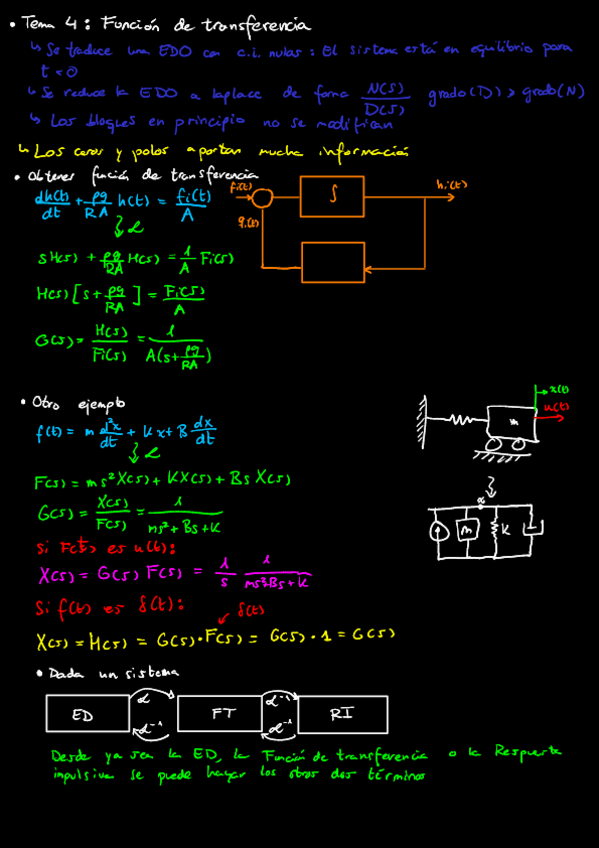 • Tema 4: Función de transferencia
↳ Se traduce una EDO con c.i. nulas: El sistema está en equilibrio para
t=0
↳ Se reduce la EDO a laplace de forma N(s)/D(s) grado(D) ≥ grado(N)
↳ Los bloques en principio no se modifican
↳ Los ceros y polos aportan mucha información
• Obtener función de transferencia
dh(t)/dt + ρg/RA h(t) = fi(t)/A
↓ L
sH(s) + ρg/RA H(s) = 1/A Fi(s)
H(s) [s + ρg/RA] = Fi(s)/A
G(s) = H(s)/Fi(s) = 1/A(s+ρg/RA)
fi(t)
∫
hi(t)
qi(t)
• Otro ejemplo
f(t) = m d²x/dt + Kx + B dx/dt
↓ L
F(s) = ms² X(s) + KX(s) + Bs X(s)
G(s) = X(s)/F(s) = 1/ms² + Bs + K
x(t)
u(t)
m
x
m
K
Si F(t) es u(t):
X(s) = G(s) F(s) = 1/s 1/ms²+Bs+K
Si f(t) es δ(t):
δ(t)
X(s) = H(s) = G(s)·F(s) = G(s)·1 = G(s)
• Dada un sistema
ED L L⁻¹ FT L⁻¹ L⁻¹ RI
Desde ya sea la ED, la Función de transferencia o la Respuesta
impulsiva se puede hayar los otros dos términos